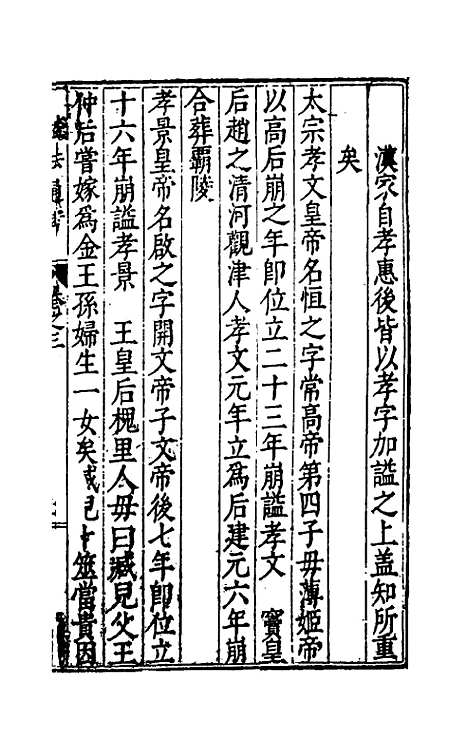 漢家自孝惠後皆以孝字加謚之上蓋知所重
矣
太宗孝文皇帝名恒之字常高帝第四子毋薄姬帝
以高后崩之年即位立二十三年崩謚孝文 竇皇
后趙之清河觀津人孝文元年立爲后建元六年崩
合葬覇陵
孝景皇帝名啟之字開文帝子文帝後七年即位立
十六年崩謚孝景 王皇后槐里人毋曰臧兒父王
仲后嘗嫁爲金王孫婦生一女矣臧兒卜筮當貴因
謚法通考
卷之三